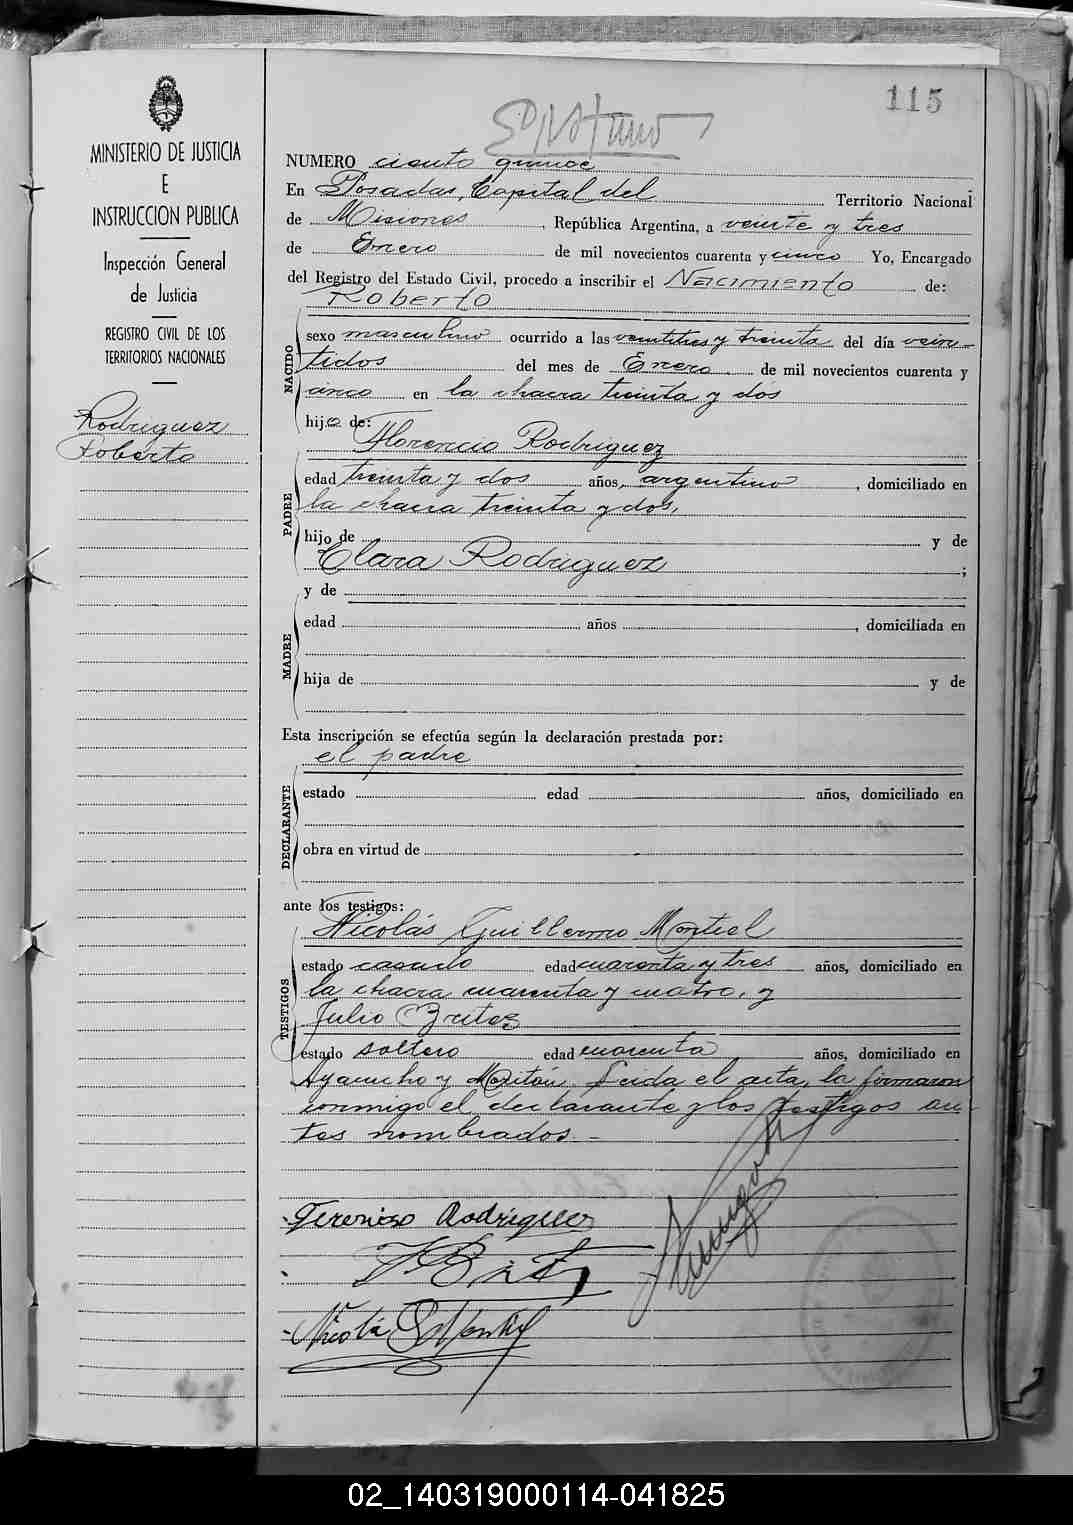 115
MINISTERIO DE JUSTICIA
E
INSTRUCCION PUBLICA
Inspección General
de Justicia
REGISTRO CIVIL DE LOS
TERRITORIOS NACIONALES
Rodriguez
Roberto
NUMERO ciento quince
En Posadas, Capital del Territorio Nacional
de Misiones, República Argentina, a veinte y tres
de Enero de mil novecientos cuarenta y cinco Yo, Encargado
del Registro del Estado Civil, procedo a inscribir el Nacimiento de:
Roberto
NACIDO
sexo masculino ocurrido a las veintitres y treinta del día vein-
tidos del mes de Enero de mil novecientos cuarenta y
cinco en la chacra treinta y dos
hijo de:
Florencio Rodriguez
PADRE
edad treinta y dos años, argentino, domiciliado en
la chacra treinta y dos,
hijo de y de
Clara Rodriguez ;
y de
MADRE
edad años , domiciliada en
hija de y de
Esta inscripción se efectúa según la declaración prestada por:
el padre
DECLARANTE
estado edad años, domiciliado en
obra en virtud de
ante los testigos:
Nicolás Guillermo Montiel
TESTIGOS
estado casado edad cuarenta y tres años, domiciliado en
la chacra cuarenta y cuatro, y
Julio Britez
estado soltero edad cuarenta años, domiciliado en
Ayacucho y Leida el acta, la firmaron
conmigo el declarante y los testigos an-
tes nombrados.-
Rodriguez
Nicolás G Montiel
02_140319000114-041825